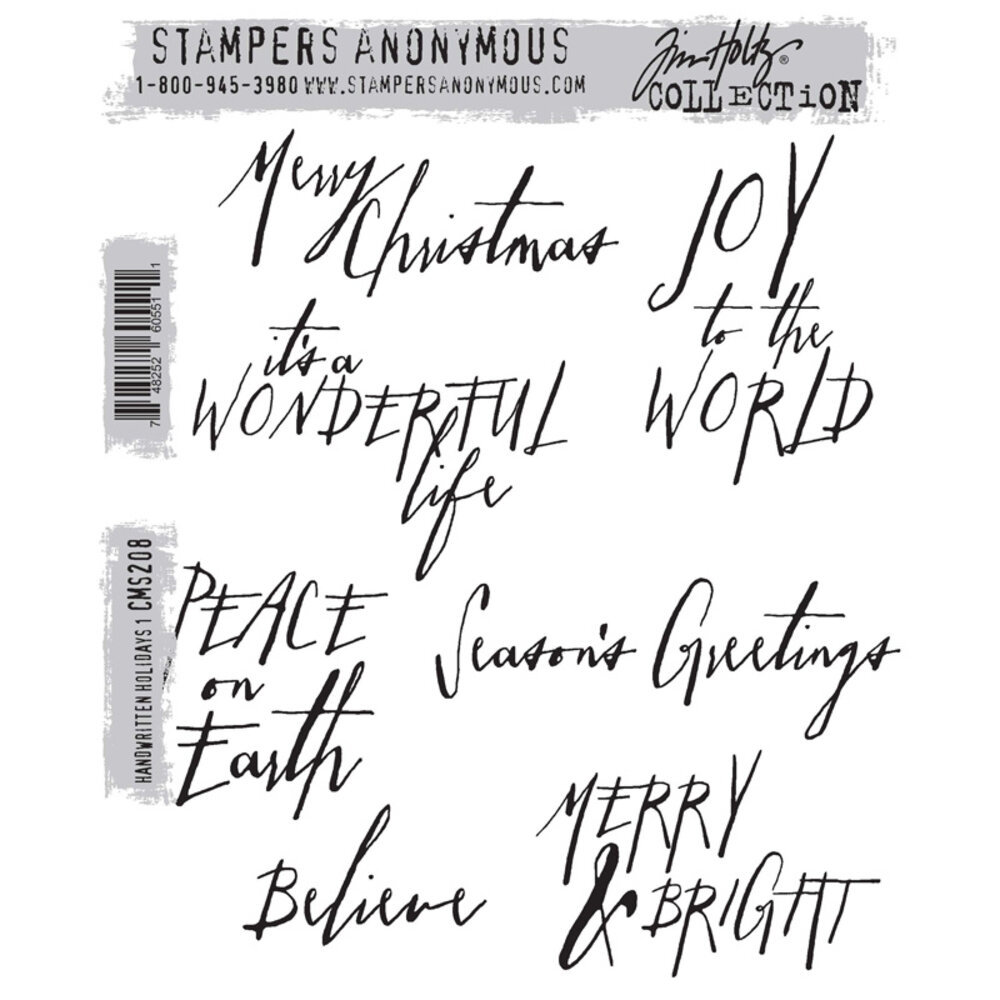 STAMPERS ANONYMOUS
1-800-945-3980 WWW.STAMPERSANONYMOUS.COM
Tim Holtz®
COLLECTION
Merry
Christmas
JOY
to the
WORLD
it's a
WONDERFUL
life
7 48252 60551 1
HANDWRITTEN HOLIDAYS 1 CMS208
PEACE
on
Earth
Season's Greetings
Believe
MERRY
& BRIGHT